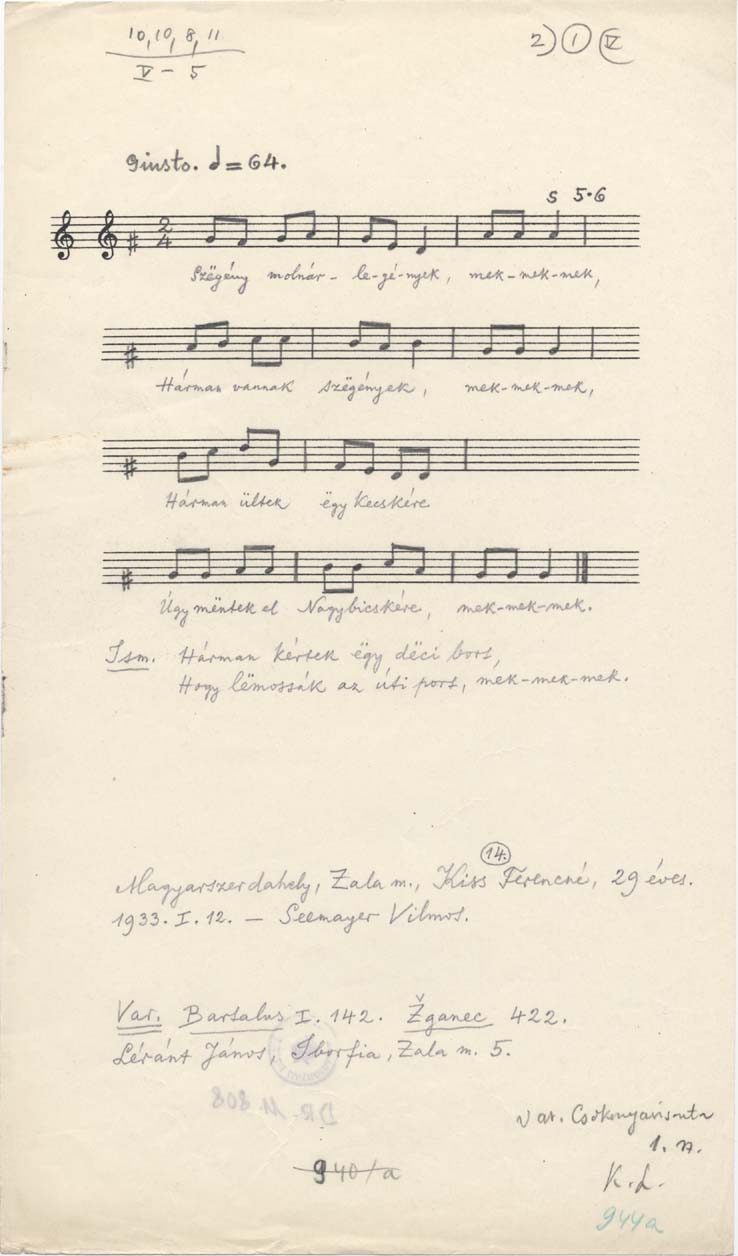 10, 10, 8, 11
V – 5
2) 1 IV
Giusto. = 64.
s 5·6
2
4
Szëgény molnár - le-gé-nyek, mek-mek-mek,
Hárman vannak szëgények, mek-mek-mek,
Hárman ültek ëgy kecskére
Úgy mëntek el Nagybicskére, mek-mek-mek.
Ism. Hárman kértek ëgy dëci bort,
Hogy lëmossák az úti port, mek-mek-mek.
14.
Magyarszerdahely, Zala m., Kiss Ferencné, 29 éves.
1933. I. 12. — Seemayer Vilmos.
Var. Bartalus I. 142. Žganec 422.
Léránt János, Iborfia, Zala m. 5.
DR. 11.808
Var. Csökonyavisonta
1. n.
940/a
K. L.
944a